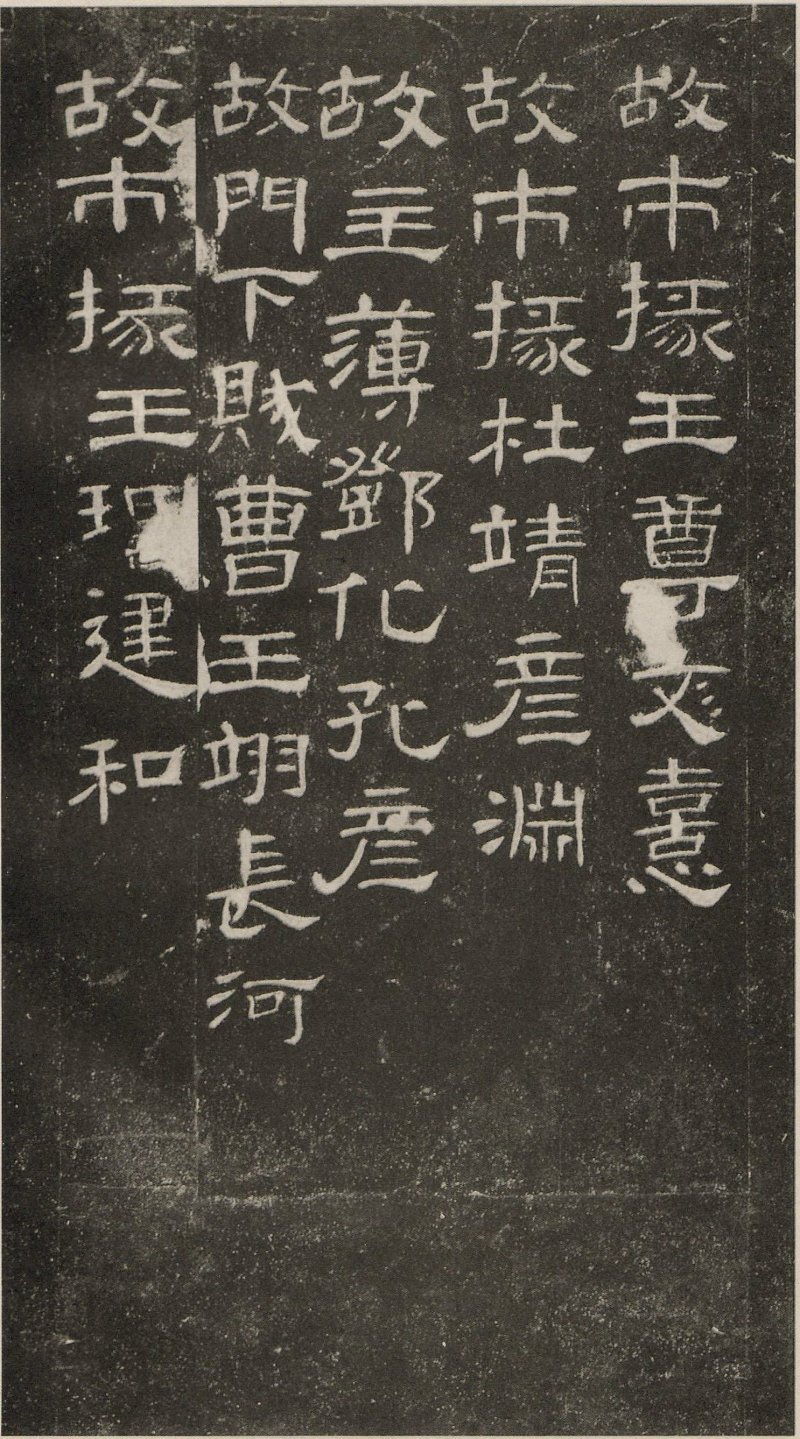 故市掾王尊文憙
故市掾杜靖彥淵
故主薄鄧化孔彥
故門下賊曹王翊長河
故市掾王建和